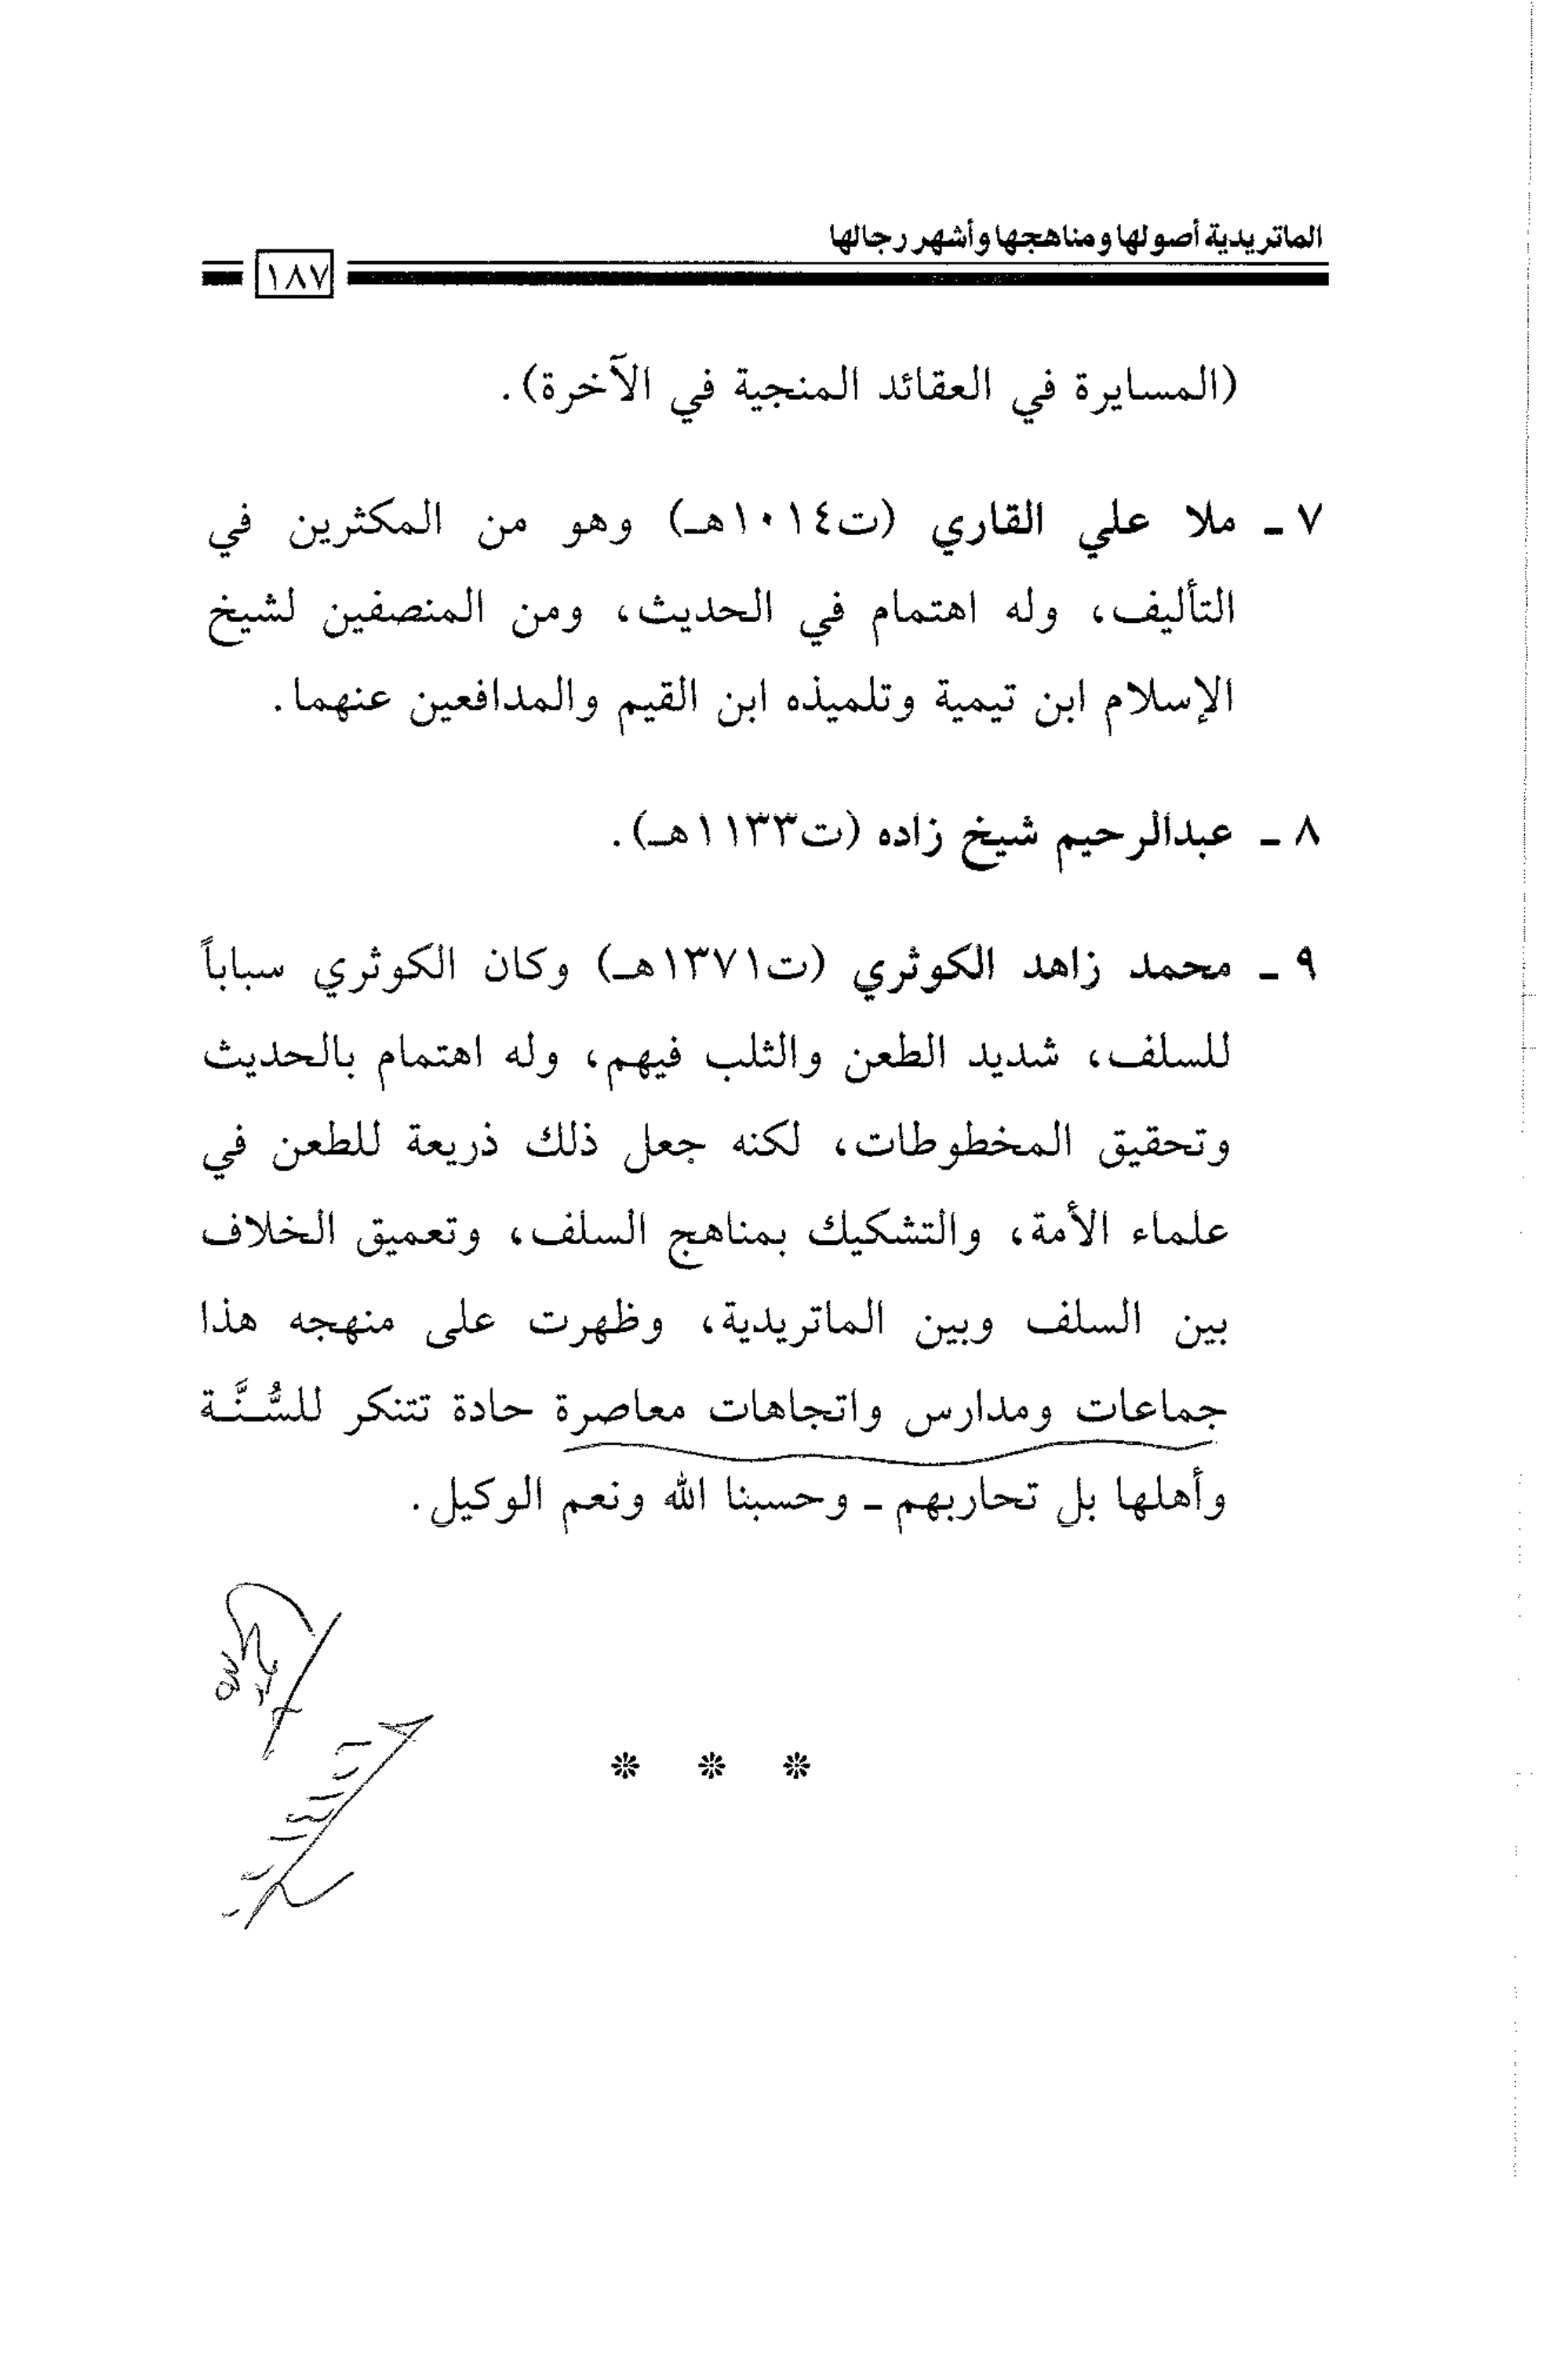 الماتريدية أصولها ومناهجها وأشهر رجالها
١٨٧
(المسايرة في العقائد المنجية في الآخرة).
٧ ـ ملا علي القاري (ت١٠١٤هـ) وهو من المكثرين في
التأليف، وله اهتمام في الحديث، ومن المنصفين لشيخ
الإسلام ابن تيمية وتلميذه ابن القيم والمدافعين عنهما.
٨ ـ عبدالرحيم شيخ زاده (ت١١٣٣هـ).
٩ ـ محمد زاهد الكوثري (ت١٣٧١هـ) وكان الكوثري سباباً
للسلف، شديد الطعن والثلب فيهم، وله اهتمام بالحديث
وتحقيق المخطوطات، لكنه جعل ذلك ذريعة للطعن في
علماء الأمة، والتشكيك بمناهج السلف، وتعميق الخلاف
بين السلف وبين الماتريدية، وظهرت على منهجه هذا
جماعات ومدارس واتجاهات معاصرة حادة تتنكر للسُّنَّة
وأهلها بل تحاربهم ـ وحسبنا الله ونعم الوكيل.
* * *